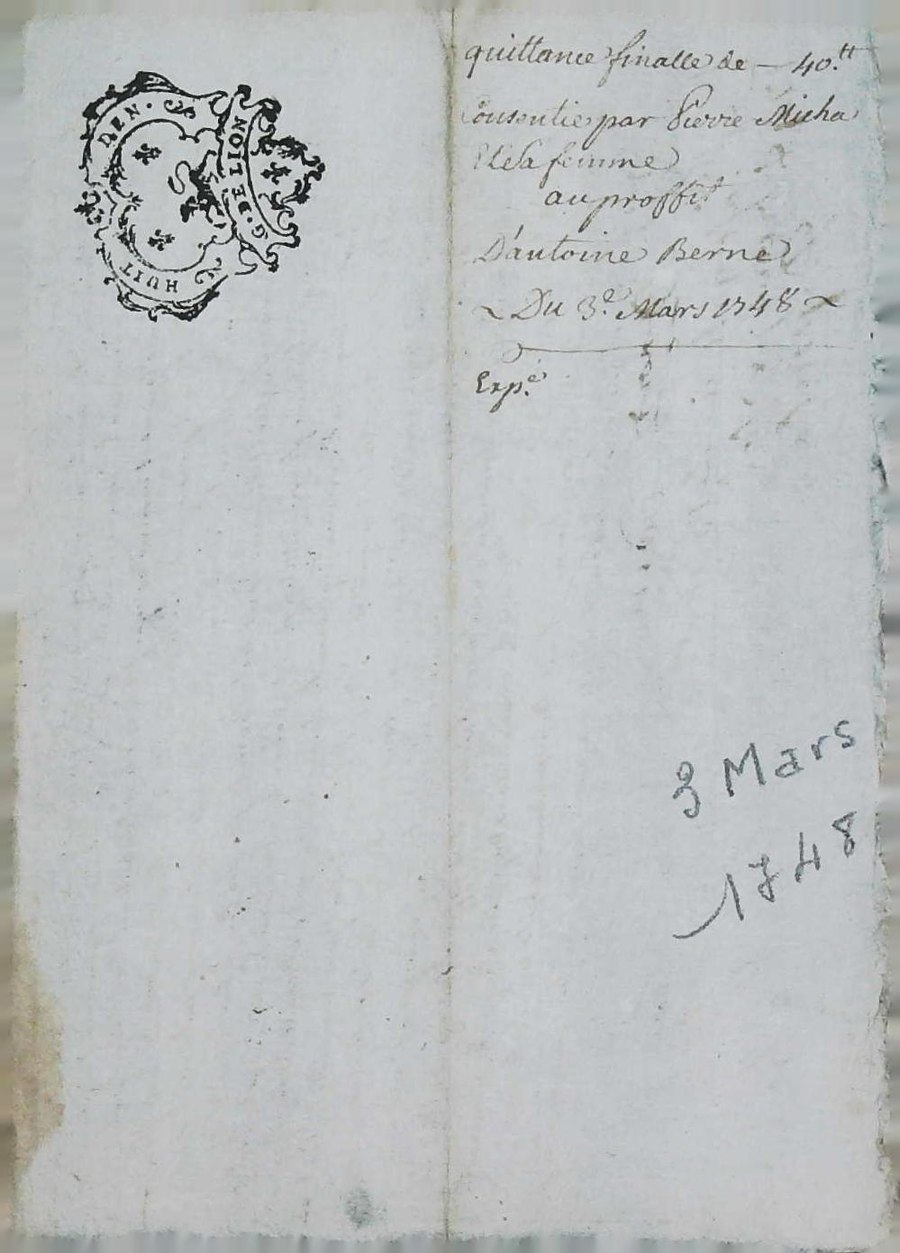 G. DE LION
HUIT DEN.
quittance finalle de — 40.tt
Consentie par Pierre Micha
Et Sa femme
au proffit
D'antoine Berne
~ Du 3.e Mars 1748 ~
Exp.e
3 Mars
1748